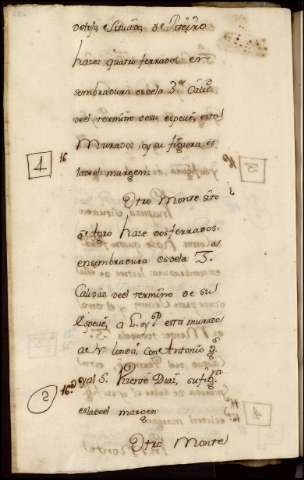 haze quatro ferrados en
sembradura es de la 3ª Calid
del termino de su especie, esta
Murados y su figura es
la del margen:
4
Otro Monte sito
haze dos ferrados
en sembradura es de la 3.
Calidad del termino de su
Especie, a L. esta murado
de N. linda, con Antonio
y al S. Vicente Diaz, su fig.
es la del margen
2
Otro Monte